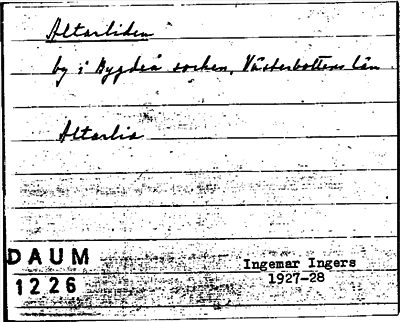 Altarliden
by i Bygdeå socken, Västerbottens län
Altarlia
DAUM
1226
Ingemar Ingers
1927-28